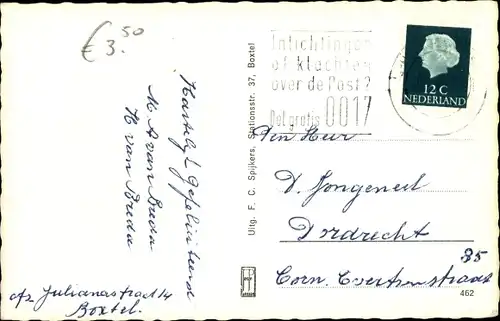 € 3.50
Inlichtingen
of klachten
over de Post?
Bel gratis 0017
12 C
NEDERLAND
Hartelijk Gefeliciteerd
M. A van Breda
H van Breda
Uitg. F. C. Spijkers, Stationsstr. 37, Boxtel
Den Heer
D. Jongeneel
Dordrecht
85
Corn. Evertsenstraat
462
afz Julianastraat 14
Boxtel.